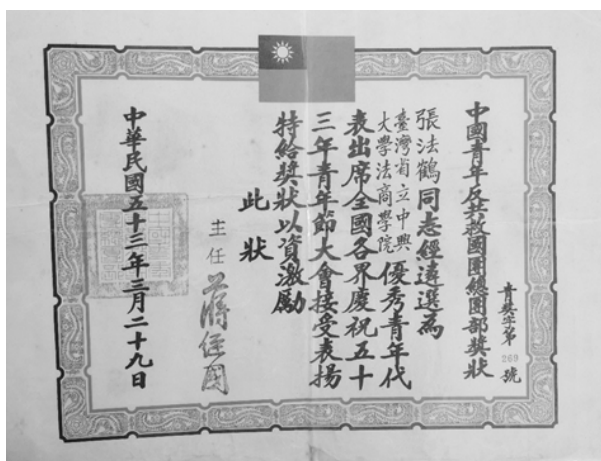 中國青年反共救國團總團部獎狀
青獎字第269號
張法鶴同志經遴選為
臺灣省立中興
大學法商學院
優秀青年代
表出席全國各界慶祝五十
三年青年節大會接受表揚
特給獎狀以資激勵
此狀
主任 蔣經國
中華民國五十三年三月二十九日